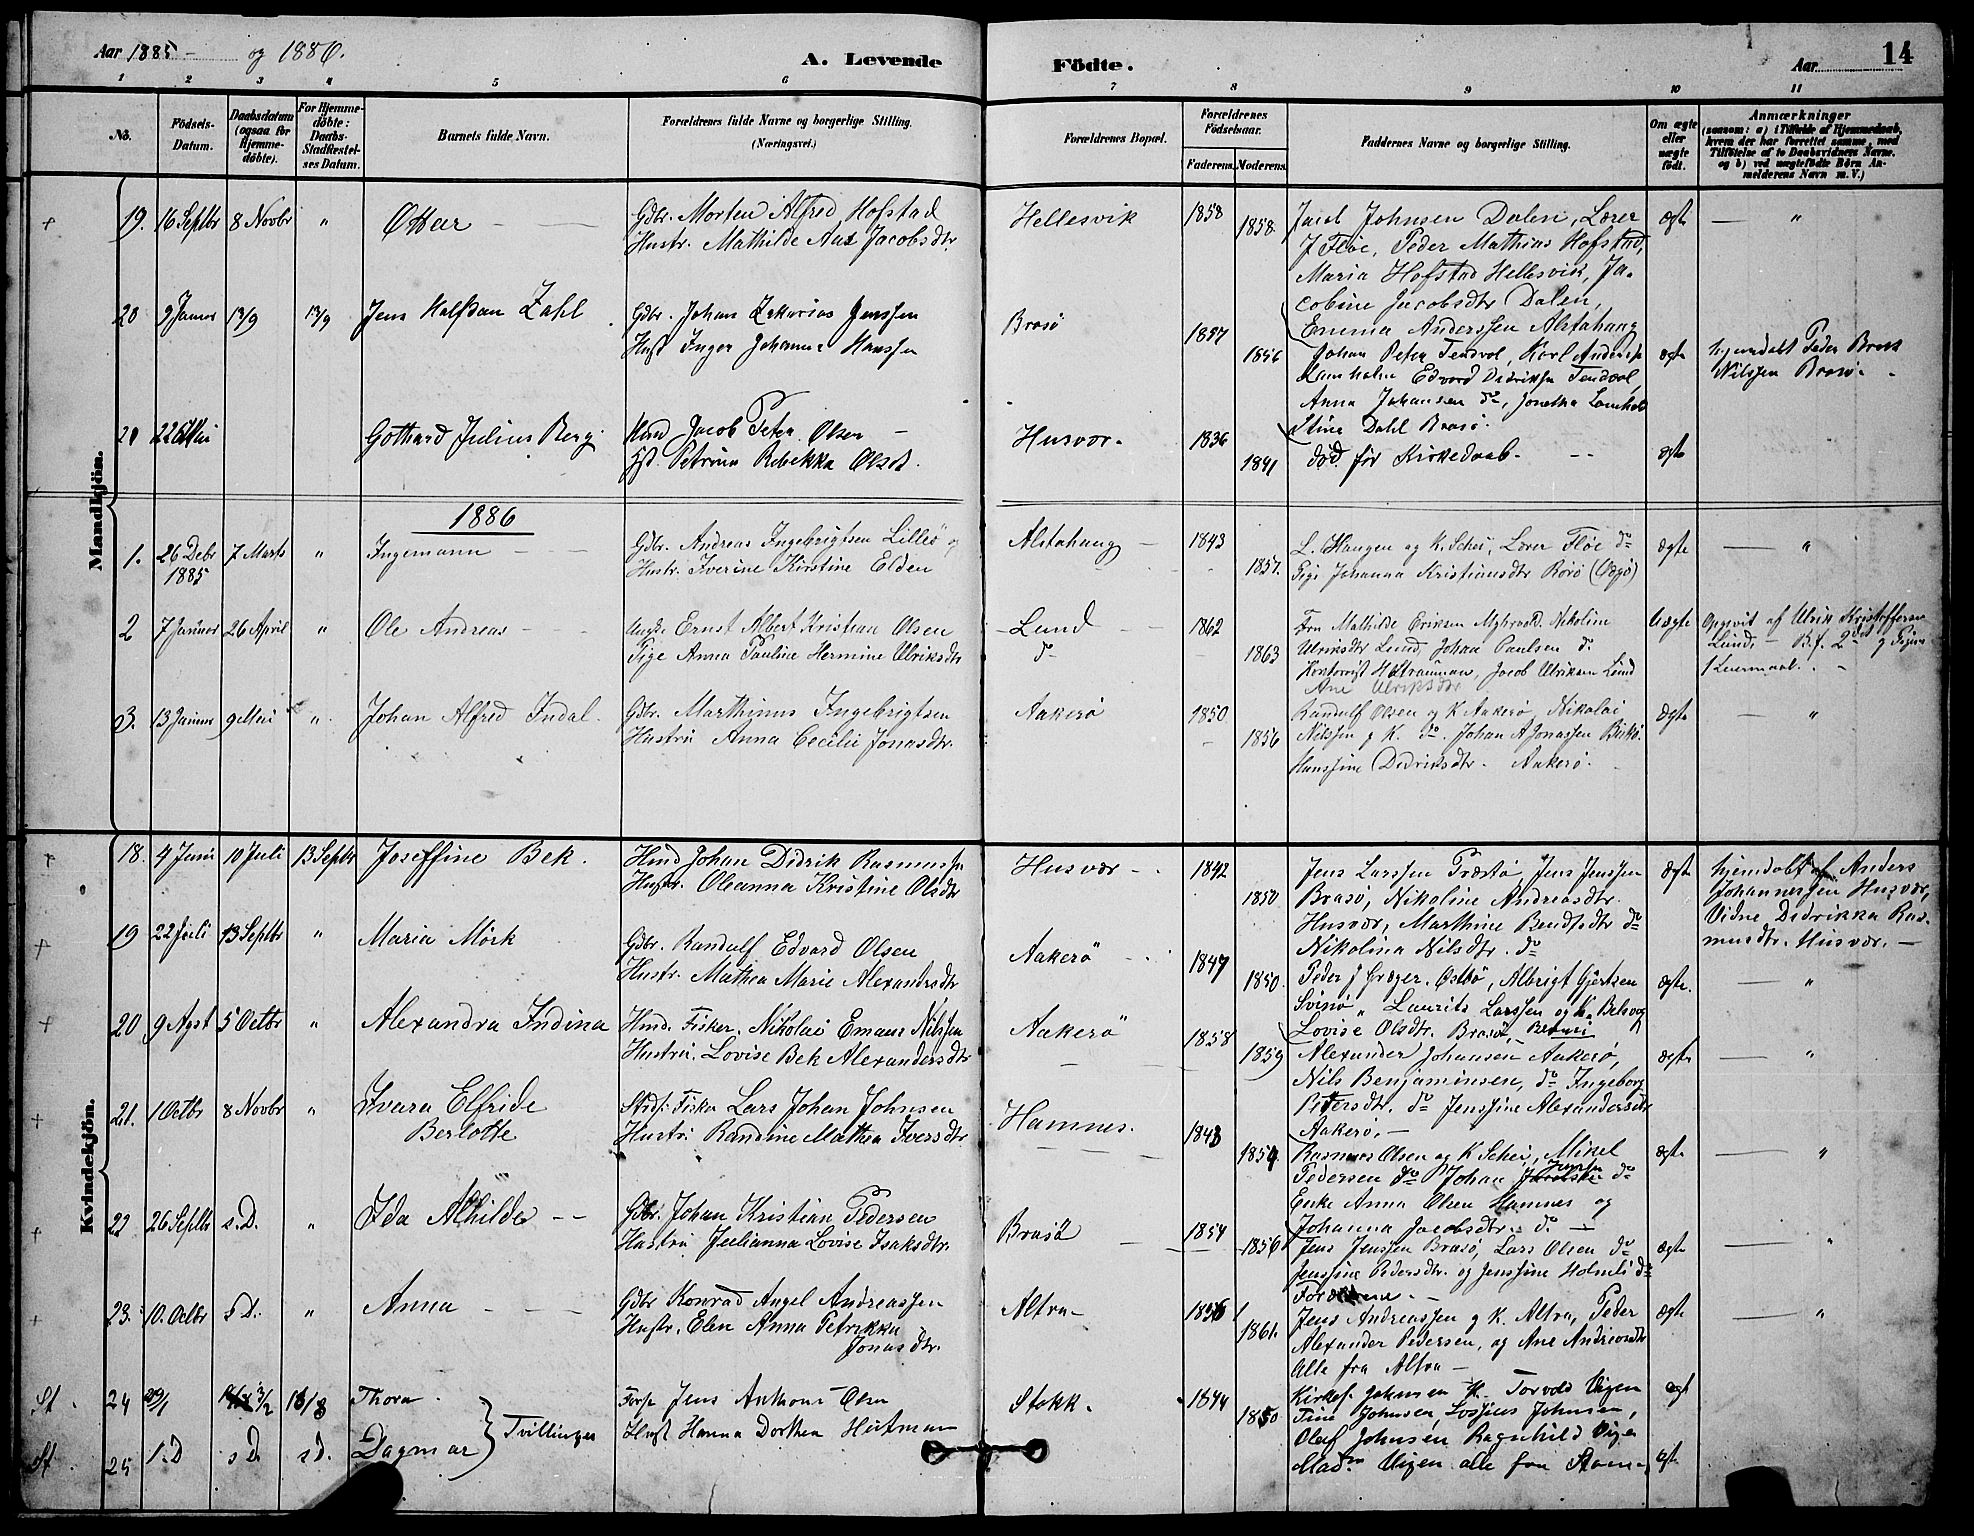 Aar 1885 - og 1886.
A. Levende Födte.
Aar 14
1 2 3 4 5 6 7 8 9 10 11
No.
Födsels-Datum.
Daabsdatum (ogsaa for Hjemme-döbte).
For Hjemme-döbte: Daabs-Stadfæstel-ses Datum.
Barnets fulde Navn.
Forældrenes fulde Navne og borgerlige Stilling. (Næringsvei.)
Forældrenes Bopæl.
Forældrenes Födselsaar.
Faderens. Moderens.
Faddernes Navne og borgerlige Stilling.
Om ægte eller uægte født.
Anmærkninger
(saasom: a) i Tilfælde af Hjemmedaab, hvem der har forrettet samme, med Tilföielse af to Daabsvidners Navne, og b) ved uægtefødte Börn An-melderens Navn m. V.)
Mandkjön.
19. 16 Septbr 8 Novbr " Ottar Gdbr. Morten Alfred Hofstad
Hustr. Mathilde Jacobsdtr. Hellesvik 1858 1858
Jacob Johnsen Dalen, Lærer
J Fløe, Peder Mathias Hofstad,
Maria Hofstad Hellesvik, Ja-
cobine Jacobsdtr Dalen,
ægte "
20 9 Januar 13/9 13/9 Jens Zahl Gdbr. Johan Zakarias Jenssen
Hust Inger Johanna Hanssen Brasö 1857 1856
Emma Anderssen Alstahaug
Johan Peter Tendvol, Karl
Edvard Didriksen Tendvol,
Anna Johansen do,
Stine Dahl Brasö.
ægte hjemdøbt Peder
Nilssen Brasö
21 22 Mai Gothard Julius Berg Hmd Jacob Peter Olsen
Hst. Petrina Rebekka Olsdt. Husvær. 1836 1841
död før Kirkedaab. ægte
1886
1. 26 Debr 1885 7 Marts " Ingemann Gdbr. Andreas Ingebrigtsen Lillesö og
Hustr. Iverine Kirstine Elden Alstahaug 1843 1857.
L. Haugen og K. Schei, Lærer Fløe do
Pige Johanna Kristiansdtr Rörö
ægte "
2 7 Januar 26 April " Ole Andreas Ungk. Ernst Albert Kristian Olsen
Pige Anna Pauline Hermine Ulriksdtr Lund do 1862 1863
Fru Mathilde Eriksen Nikoline
Ulriksdtr Lund, Johan Paulsen do
Jacob Ulriksen Lund
Ane Ulriksdtr
Uægte Opgivet af Ulrik Kristoffersen
Lund, - B.f. 2det og Pigens
1 Leiermaal.
3. 13 Januar 9 Mai " Johan Alfred Indal. Gdbr. Marthinus Ingebrigtsen
Hustru Anna Cecilie Jonasdtr. Aakerö 1850 1856
Randulf Olsen og K Aakerö, Nikolai
Nilssen og K. do. Johan A Jonassen
Hanssine Didriksdtr. Aakerö.
ægte "
Kvindekjön.
18. 4 Juni 10 Juli 13 Septbr Joseffine Bek. Hmd Johan Didrik Rasmussen
Hustr. Oleanna Kristine Olsdtr Husvær 1842 1850
Jens Larssen Prærtö, Jens Jenssen
Brasö, Nikoline Andreasdtr.
Husvær, Marthine Bendtsdtr do
Nikolina Nilsdtr. do
ægte hjemdøbt af Anders
Johannessen Husvær,
Vidne Didrikka Ras-
musdtr. Husvær.
19 22 Juli 13 Septbr " Maria Mörk Gdbr. Randulf Edvard Olsen
Hustr. Mathea Marie Alexandersdtr Aakerö 1847 1850.
Peder J Græger, Østbö, Albrigt Gjertsen
Svinö, Laurits Larssen og K. Belsvog
Lovise Olsdtr. Brasö
ægte. "
20 9 Agst 5 Octbr " Alexandra Indina Hmd. Fisker. Nikolai Emans Nilssen
Hustru. Lovise Bek Alexandersdtr Aakerö 1858 1859
Alexander Johansen Aakerö,
Nils Benjaminsen, do Ingeborg
Petersdtr. do Jenssine Alexandersdtr
Aakerö.
ægte "
21. 1 Octbr 8 Novbr " Ivara Elfride
Berlotte Fisker Lars Johan Johnsen
Hustru Randine Mathea Iversdtr Hamnes. 1843 1854
Rasmus Olsen og K Schei, Mikel
Pedersen do Johan do
Enke Anna Olsen Hamnes og
Johanna Jacobsdtr. do
ægte "
22 26 Septbr s.D. " Ida Alhilde Gdbr. Johan Kristian Pedersen
Hustru Julianna Lovise Isaksdtr. Brasö 1854 1856
Jens Jenssen Brasö, Lars Olsen do
Jenssine Pedersdtr. og Jenssine Holmli do
Forældrene.
ægte "
23. 10. Octbr s.D. " Anna Gdbr Konrad Angel Andreassen
Hustr. Elen Anna Petrikka
Jonasdtr. Altra 1856 1861.
Jens Andreassen og K. Altra, Peder
Alexander Pedersen, og Ane Andreasdtr
Alle fra Altra
ægte "
St. 24 29/1 3/2 18/8 Thora Jens Olsen
Hust Hanna Dorthea Heitman Stokk. 1844 1850
Kirkes. Johnsen K. Torvald Vigen
Tine Johnsen, Johnsen,
Olaf Johnsen Ragnhild Vigen
Mad. Vigen alle fra
ægt
St. 25 s.D s.D. s.d. Dagmar Tvillinger ægt.